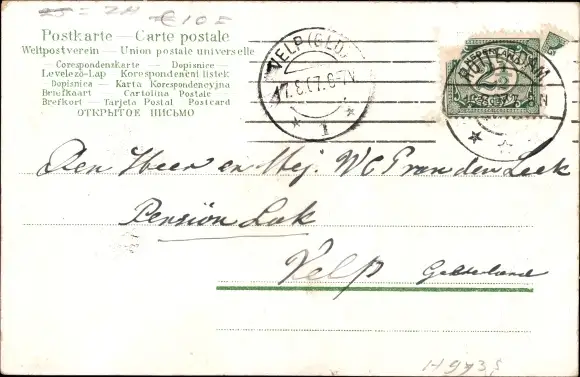 €10=
Postkarte — Carte postale
Weltpostverein — Union postale universelle
Corespondenzkarte — Dopisnice
Levelező-Lap Korespondenení listek
Dopisnica — Karta Korespondencyjna
Briefkaart — Cartolina Postale
Brefkort — Tarjeta Postal Postcard
ОТКРЫТОЕ ПИСЬМО
VELP (GLD.)
7. 8-7V.
1
ROTTERDAM
2½
Den Heer en Mej. W C P van den Leek
Pension Lak
Velp Gelderland